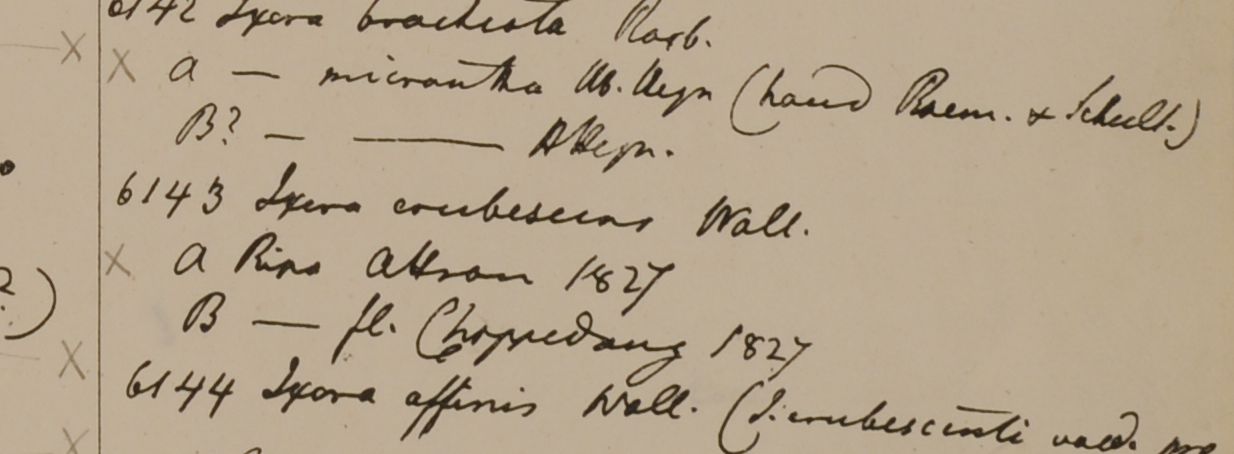 6142 Ixora brachiata Roxb.
a — micrantha Hb. Heyn (haud Roem. & Schult.)
B? — ——— HHeyn.
6143 Ixora erubescens Wall.
a Ripa Attran 1827
B — fl. Choppedong 1827
6144 Ixora affinis Wall. (I. erubescenti valde
?)